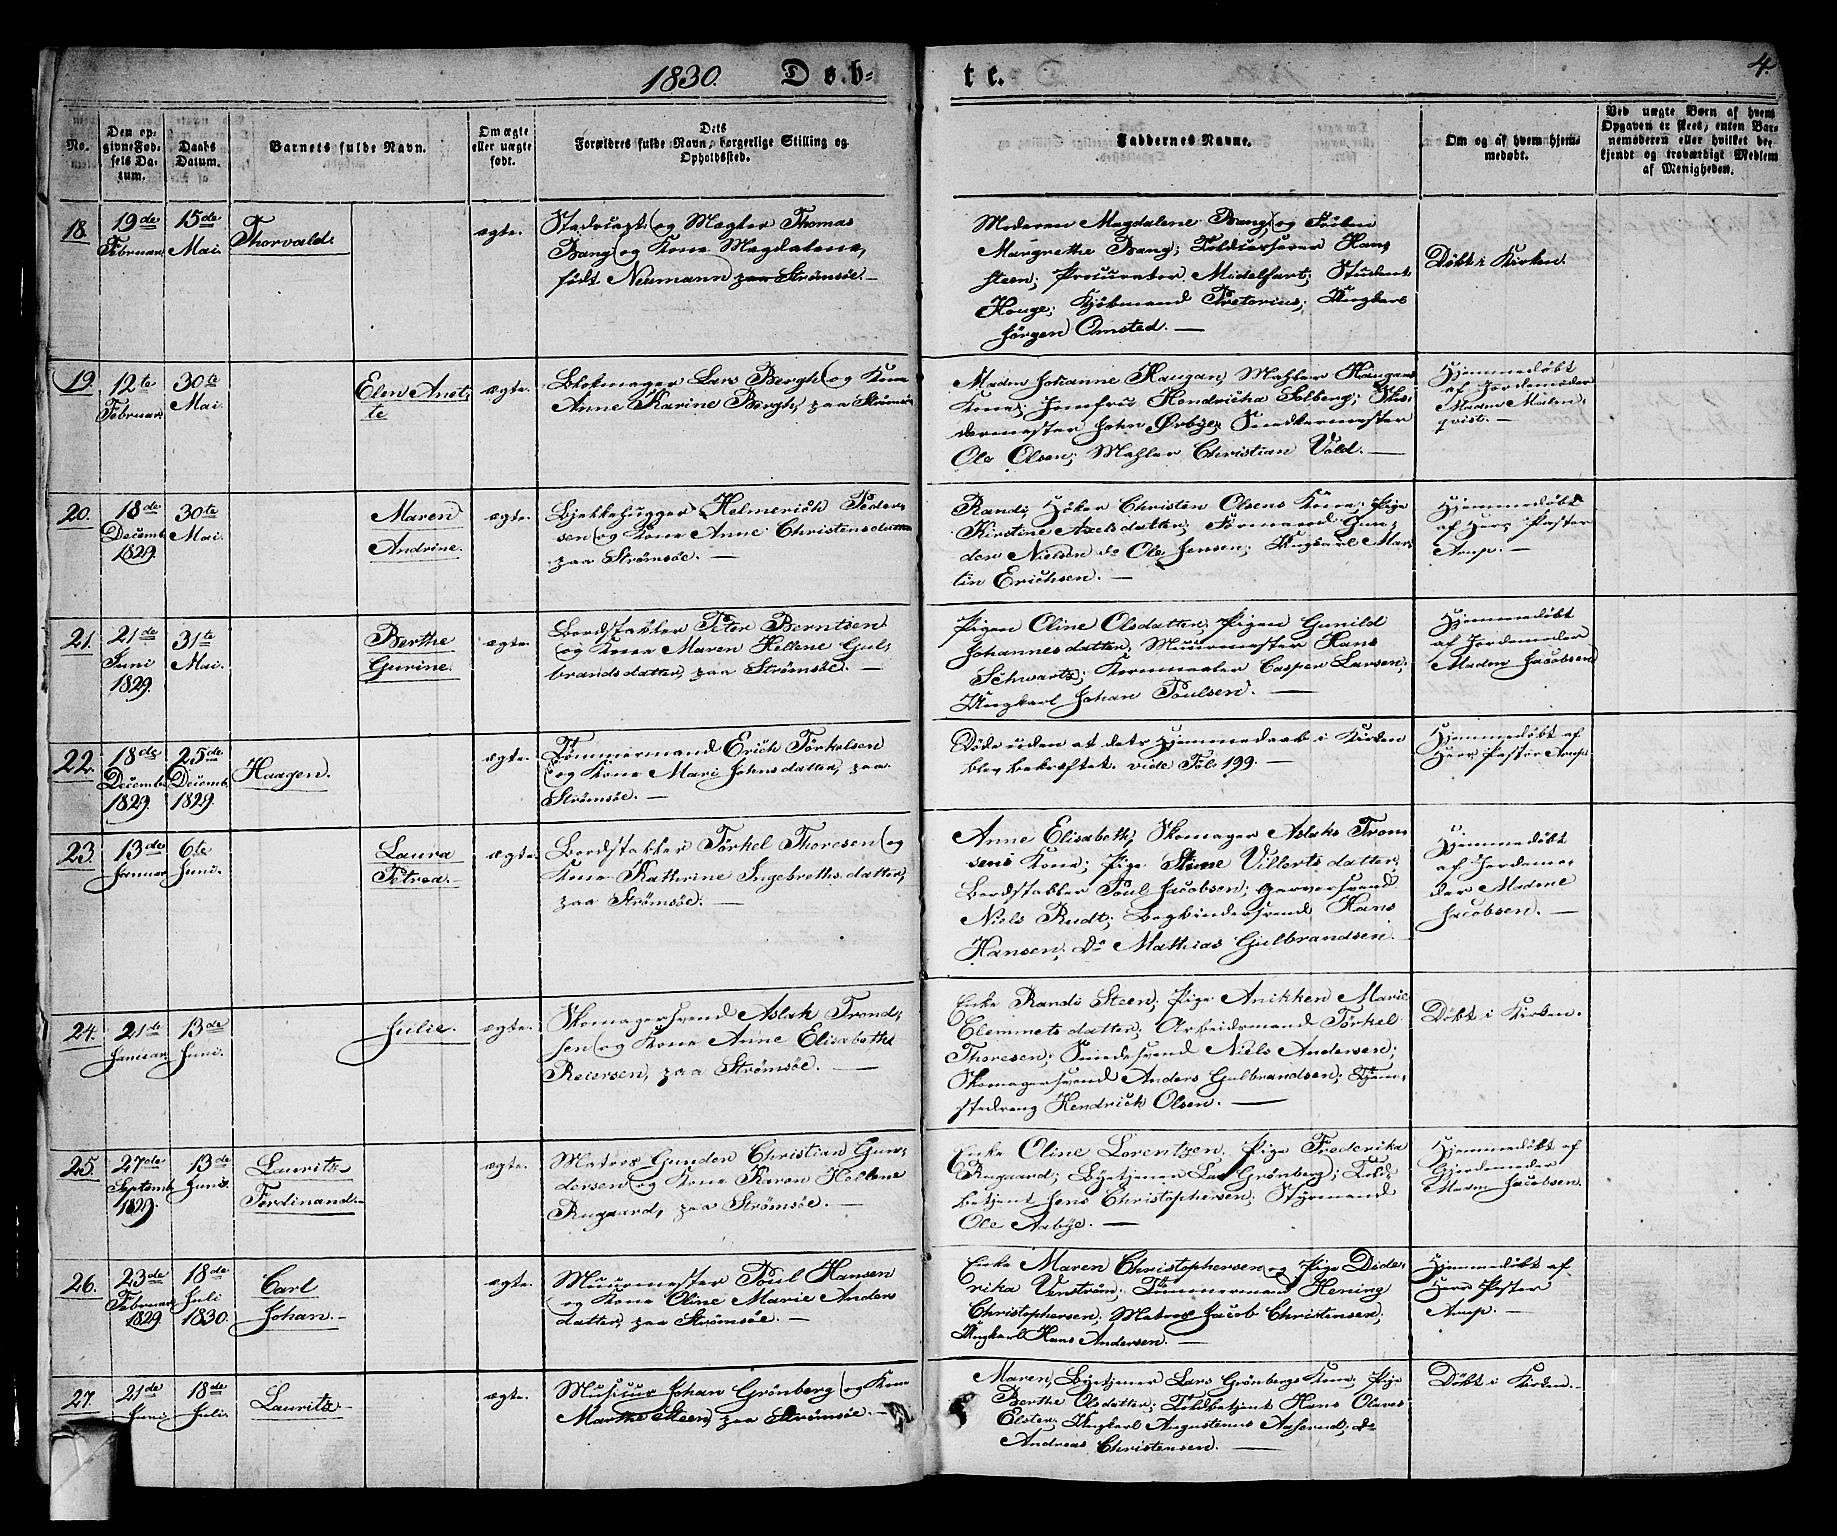 1830. Døb=
te. 4.
No.
Den op=
givne Fød=
sels Da=
tum.
Daabs
Datum.
Barnets fulde Navn.
Om ægte
eller uægte
født.
Dets
Forældres fulde Navn, borgerlige Stilling og
Opholdssted.
Faddernes Navne.
Om og af hvem hjem=
medøbt.
Ved uægte Børn af hvem
Opgaven er skeet, enten Bar=
nemoderen eller hvilket be=
kjendt og troværdigt Medlem
af Menigheden.
18. 19de Februar 15de Mai. Thorvald. ægte.
og Mægler Thomas
Bang (og Kone Magdalena,
født Neumann paa Strømsøe.—
Moderen Magdalene Bang, og Frøken
Margrethe Bang; Toldcasserer Han=
steen; Procurator Midelfart; Student
Houge; Kjøbmand Pretorius; Ungkarl
Jørgen Omsted.—
Døbt i Kirken.
19. 12te Februar 30te Mai. Elen Anet=
te ægte.
Blokmager Lars Bergh (og Kone
Anne Karine Bergh, paa Strømsøe
Madm Johanne Haugan, Mahler Haugans
Kone, Jomfru Hendricka Solberg;
John Ørbye, Snedkermester
Ole Olsen; Mahler Christian Vold.—
Hjemmedøbt
af Jordemoder
Madm Malm=
qvist.—
20. 18de Decemb. 1829. 30te Mai. Maren
Andrine. ægte.
Bjelkehugger Helmerich Peder=
sen (og Kone Anne Christensdatter
paa Strømsøe.—
Randi, Høker Christen Olsens Kone; Pige
Kirstine Axelsdatter; Formand Gun=
der Nielsen do Ole Jensen; Ungkarl Mar=
tin Erichsen.—
Hjemmedøbt
af Herr Pastor
Arup.—
21. 21de Juni 1829. 31te Mai. Berthe
Gurine. ægte.
Bordstabler Peter Berntsen
(og Kone Maren Hellene Gul=
brandsdatter, paa Strømsøe.—
Pigen Oline Olsdatter, Pigen Gunild
Johannesdatter, Muurmester Hans
Schwartz; Kornmaaler Casper Larsen;
Ungkarl Johan Poulsen.—
Hjemmedøbt
af Jordemoder
Madm Jacobsen
22. 18de Decemb. 1829. 25de Decemb. 1829. Haagen. ægte.
Tømmermand Erich Torkelsen
(og Kone Mari Johnsdatter, paa
Strømsøe.—
Døde uden at dets Hjemmedaab i Kirken
blev bekræftet. vide Fol: 199.
Hjemmedøbt af
Herr Pastor Arup.
23. 13de Januar 6te Juni. Laura
Petrea. ægte.
Bordstabler Torkel Thoresen (og
Kone Kathrine Ingebrethsdatter,
paa Strømsøe.—
Anne Elisabeth, Skomager Aslaks Tron=
sens Kone; Pige Stine Villertsdatter;
Bordstabler Poul Jacobsen; Garversvend
Niels Rudt; Bogbindersvend Hans
Hansen, Do Mathias Gulbrandsen.
Hjemmedøbt
af Jordemo=
der Madme
Jacobsen.—
24. 21de Januar. 13de Juni. Julie. ægte.
Skomagersvend Aslak Trond=
sen (og Kone Anne Elisabeth
Reiersen, paa Strømsøe.—
Enke Randi Steen; Pige Anikken Marie
Clemmetsdatter; Arbeidsmand Torkel
Thoresen; Smedesvend Niels Andersen;
Skomagersvend Anders Gulbrandsen; Tjene=
stedreng Hendrick Olsen.—
Døbt i Kirken.
25. 27de Septemb. 1829. 13de Juni. Lauritz
Ferdinand. ægte.
Matros Gunder Christian Gun=
dersen (og Kone Karen Hellene
Rugaard, paa Strømsøe.—
Enke Oline Lorentzen, Pige Frederika
Rugaard; Byetjener Lars Grønberg; Told=
betjent Jens Christophersen; Styrmand
Ole Aabye.—
Hjemmedøbt af
Hjordemoder
Madm Jacobsen.
26. 23de Februar 1829 18de Juli 1830. Carl
Johan.— ægte.
Muurmester Poul Hansen
og Kone Oline Marie Anders
datter, paa Strømsøe.—
Enke Maren Christophersen, og Pige Dide=
rika Venstrøm; Tømmermand Hening
Christophersen; Matros Jacob Christensen;
Ungkarl Hans Andersen.—
Hjemmedøbt af
Herr Pastor
Arup.—
27. 21de Juni. 18de Juli. Lauritz ægte.
Musicus Johan Grønberg (og Kone
Marthe Steen, paa Strømsøe.—
Maren, Byetjener Lars Grønbergs Kone, Pige
Berthe Olsdatter; Toldbetjent Hans Olaves
Elster; Ungkarl Augustinus Aaserud; do
Andreas Christensen.—
Døbt i Kirken.